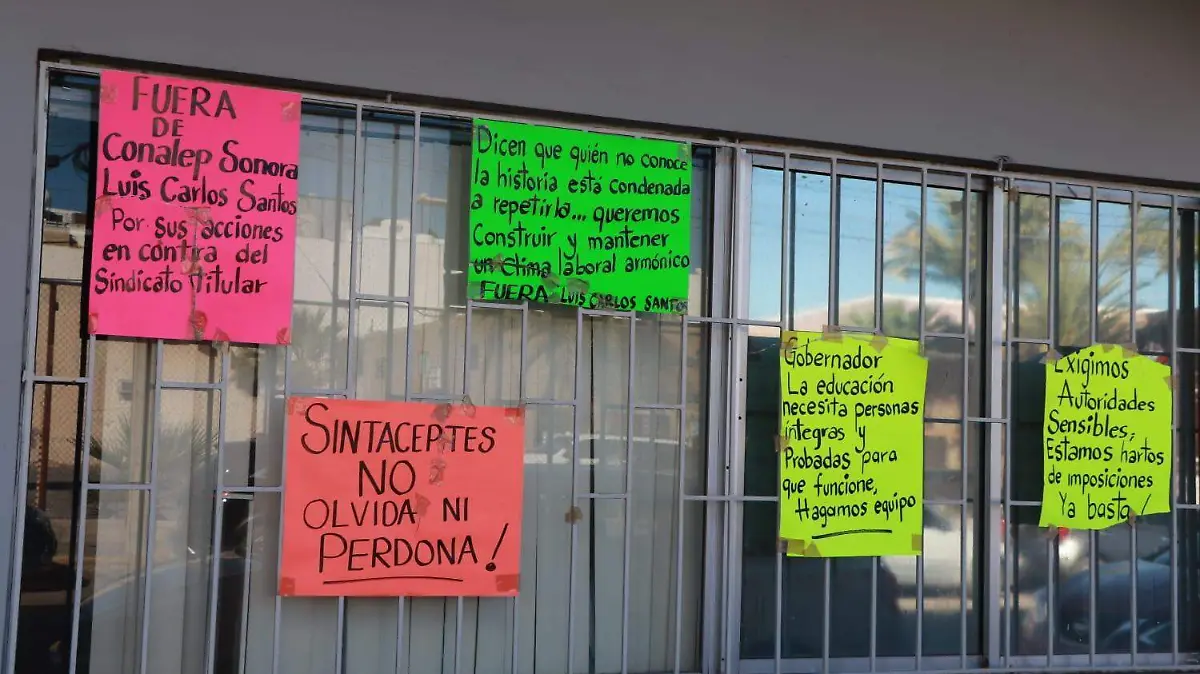 FUERA
DE
Conalep Sonora
Luis Carlos Santos
Por sus acciones
en contra del
Sindicato Titular
Dicen que quién no conoce
la historia está condenada
a repetirla... queremos
Construir y mantener
un clima laboral armónico
FUERA LUIS CARLOS SANTOS
SINTACEPTES
NO
OLVIDA NI
PERDONA!
Gobernador
La educación
necesita personas
integras y
Probadas para
que funcione,
Hagamos equipo
Exigimos
Autoridades
Sensibles,
Estamos hartos
de imposiciones
Ya basta!